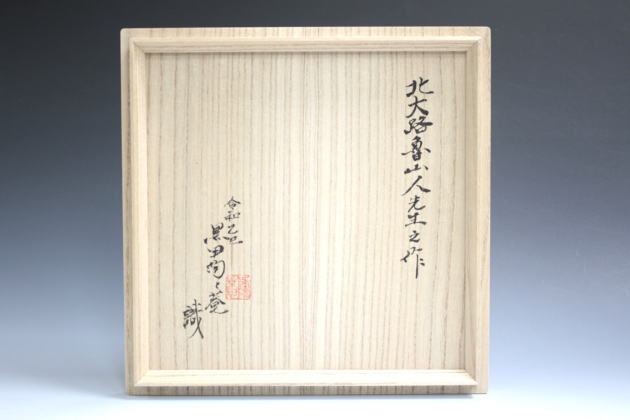 北大路魯山人先生之作
令和乙巳
黒田陶々菴
識